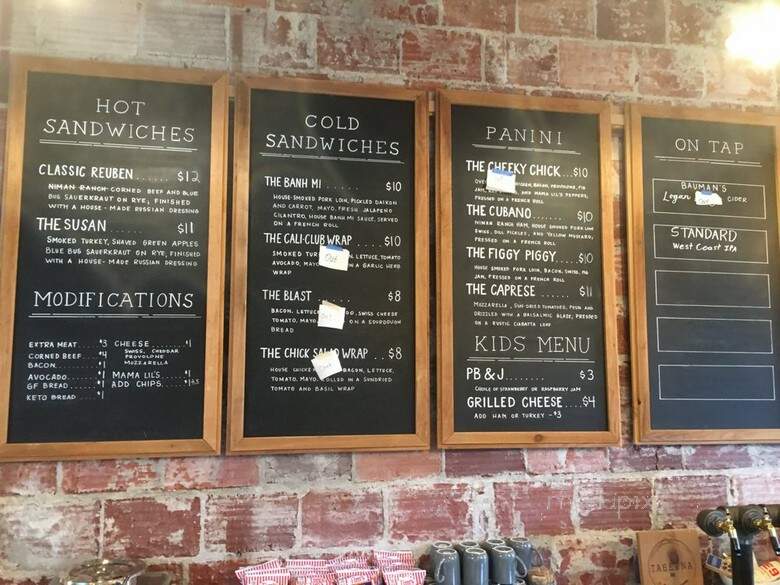 HOT
SANDWICHES
CLASSIC REUBEN...... $12
NIMAN RANCH CORNED BEEF AND BLUE
BUS SAUERKRAUT ON RYE, FINISHED
WITH A HOUSE-MADE RUSSIAN DRESSING
THE SUSAN........... $11
SMOKED TURKEY, SHAVED GREEN APPLES
BLUE BUS SAUERKRAUT ON RYE, FINISHED
WITH A HOUSE-MADE RUSSIAN DRESSING
MODIFICATIONS
EXTRA MEAT......$3
CORNED BEEF...$4
BACON........
AVOCADO.......$1
GF BREAD......$1
KETO BREAD....$1
CHEESE........$1
SWISS, CHEDDAR
PROVOLONE
MOZZARELLA
MAMA LIL'S....$1
ADD CHIPS....
COLD
SANDWICHES
THE BANH MI........ $10
HOUSE-SMOKED PORK LOIN, PICKLED DAIKON
AND CARROT, MAYO, FRESH JALAPENO
CILANTRO, HOUSE BANH MI SAUCE, SERVED
ON A FRENCH ROLL
THE CALI-CLUB WRAP....$10
SMOKED LETTUCE, TOMATO
AVOCADO, MAYO IN A GARLIC HERB
WRAP
Out
THE BLAST ........ $8
BACON, LETTUCE, SWISS CHEESE
TOMATO, MAYO ON A SOURDOUGH
BREAD
THE CHICK WRAP .. $8
HOUSE BACON, LETTUCE,
TOMATO, MAYO. ROLLED IN A SUNDRIED
TOMATO AND BASIL WRAP
PANINI
THE CHEEKY CHICK...$10
BACON, PROVOLONE, FIG
JAM, AND MAMA LIL'S PEPPERS,
PRESSED ON A FRENCH ROLL
THE CUBANO........$10
NIMAN RANCH HAM, HOUSE SMOKED PORK LOIN
SWISS, DILL PICKLES, AND YELLOW MUSTARD,
PRESSED ON A FRENCH ROLL
THE FIGGY PIGGY.....$10
HOUSE SMOKED PORK LOIN, BACON, SWISS, FIG
JAM, PRESSED ON A FRENCH ROLL
THE CAPRESE ...... $11
MOZZARELLA, SUN-DRIED TOMATOES, PESTO AND
DRIZZLED WITH A BALSALMIC GLAZE, PRESSED
ON A RUSTIC CIABATTA LOAF
KIDS MENU
PB & J.......... $3
CHOICE OF STRAWBERRY OR RASPBERRY JAM
GRILLED CHEESE....$4
ADD HAM OR TURKEY -$3
ON TAP
BAUMAN'S
Logan CIDER
STANDARD
West Coast IPA
TABERNA
menupix